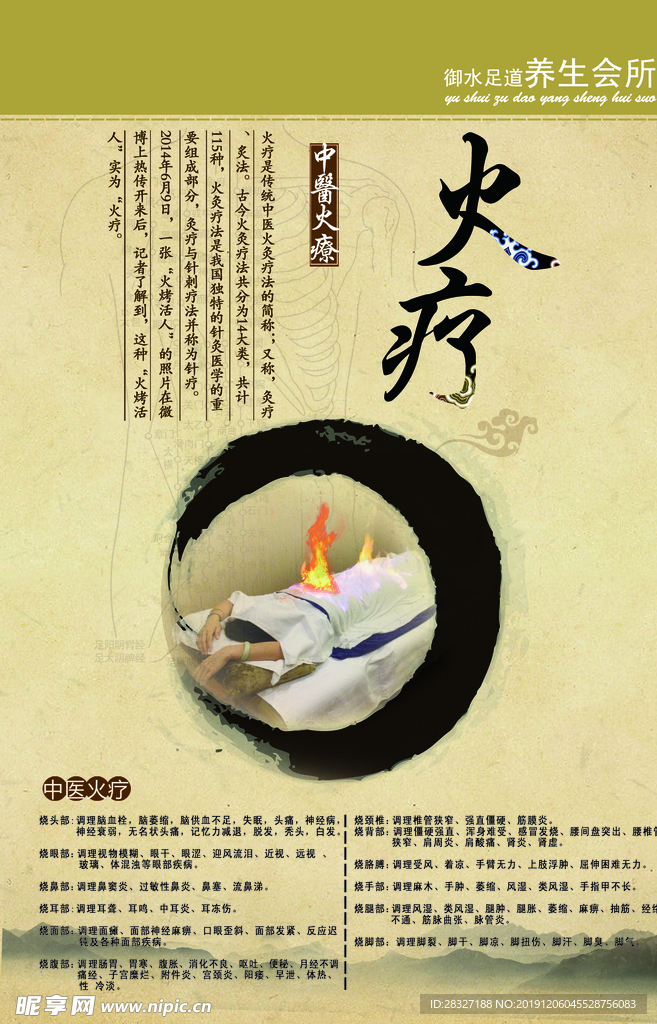 御水足道养生会所
yu shui zu dao yang sheng hui suo
火疗
中醫火療
火疗是传统中医火灸疗法的简称；又称，灸疗
、灸法。古今火灸疗法共分为14大类，共计
115种，火灸疗法是我国独特的针灸医学的重
要组成部分，灸疗与针刺疗法并称为针疗。
2014年6月9日，一张“火烤活人”的照片在微
博上热传开来后，记者了解到，这种“火烤活
人”实为“火疗。
足阳明胃经
足太阴脾经
中医火疗
烧头部：调理脑血栓，脑萎缩，脑供血不足，失眠，头痛，神经病，
神经衰弱，无名状头痛，记忆力减退，脱发，秃头，白发。
烧眼部：调理视物模糊、眼干、眼涩、迎风流泪、近视、远视 、
玻璃、体混浊等眼部疾病。
烧鼻部：调理鼻窦炎、过敏性鼻炎、鼻塞、流鼻涕。
烧耳部：调理耳聋、耳鸣、中耳炎、耳冻伤。
烧面部：调理面瘫、面部神经麻痹、口眼歪斜、面部发紧、反应迟
钝及各种面部疾病。
烧腹部：调理肠胃、胃寒、腹胀、消化不良、呕吐、便秘、月经不调
痛经、子宫糜烂、附件炎、宫颈炎、阳痿、早泄、体热、
性 冷淡。
烧颈椎：调理椎管狭窄、强直僵硬、筋膜炎。
烧背部：调理僵硬强直、浑身难受、感冒发烧、腰间盘突出、腰椎管
狭窄、肩周炎、肩酸痛、肾炎、肾虚。
烧胳膊：调理受风、着凉、手臂无力、上肢浮肿、屈伸困难无力。
烧手部：调理麻木、手肿、萎缩、风湿、类风湿、手指甲不长。
烧腿部：调理风湿、类风湿、腿肿、腿胀、萎缩、麻痹、抽筋、经络
不通、筋脉曲张、脉管炎。
烧脚部：调理脚裂、脚干、脚凉、脚扭伤、脚汗、脚臭、脚气
昵享网 www.nipic.cn
ID:28327188 NO:20191206045528756083